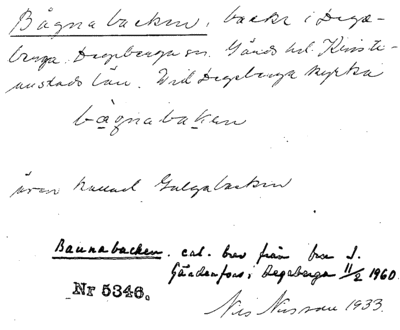 Bågnabacken, backe i Dege-
berga. Degeberga sn. Gärds hd. Kristi-
anstads län. Vid Degeberga kyrka
bågnabaken
även kallad Galgabacken
Baunabacken. enl. brev från hr J.
Gärdenfors i Degeberga 11/2 1960.
Nr 5346.
Nils Nilsson 1933.